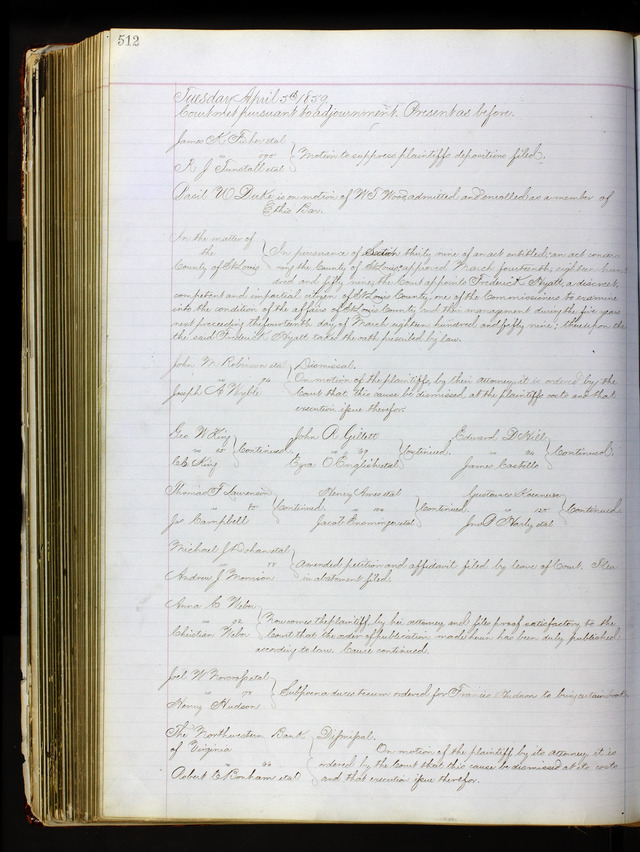 512
Tuesday April 5th 1859
Court met pursuant to adjournment. Present as before.
James K Fisher et al
R J Tunstall et al
Motion to suppress plaintiffs depositions filed.
Basil W Duke is on motion of W T Wood admitted and enrolled as a member of
this Bar.
In the matter of
the
County of St Louis
In pursuance of Section thirty nine of an act entitled; an act concer-
ning the County of St Louis approved March fourteenth, eighteen hun-
dred and fifty nine, the Court appoints Frederick Hyatt, a discreet,
competent and impartial citizen of St Louis County, one of the Commissioners to examine
into the condition of the affairs of St Louis County and their management during the five years
next preceding the fourteenth day of March eighteen hundred and fifty nine; thereupon the
the said Frederick Hyatt takes the oath prescribed by law.
John M Robinson et al
Joseph A Wyble
Dismissal.
On motion of the plaintiffs, by their attorney, it is ordered by the
Court that this cause be dismissed, at the plaintiffs costs and that
execution issue therefor.
Geo W King
C E King
Continued.
John R Gillett
Ezra O English et al
Continued.
Edward D Hill
James Castello
Continued.
Thomas F Lawrenson
Jas Campbell
Continued.
Henry Ames et al
Jacob Ensminger et al
Continued.
Gustavus Koerner
Jno P Harly et al
Continued.
Michael J Dohan et al
Andrew J Morrison
Amended petition and affidavit filed by leave of Court. Plea
in abatement filed.
Anna C Weber
92
Christian Weber
Now comes the plaintiff, by her attorney, and files proof satisfactory to the
Court that the order of publication made herein has been duly published
according to law. Cause continued.
Joel W Norcross et al
Henry Hudson
Subpoena duces tecum ordered for Francis Hudson to bring certain books
The Northwestern Bank
of Virginia
Robert C Bonham et al
Dismissal.
On motion of the plaintiff by its attorney it is
ordered by the Court that this cause be dismissed at its costs
and that execution issue therefor.